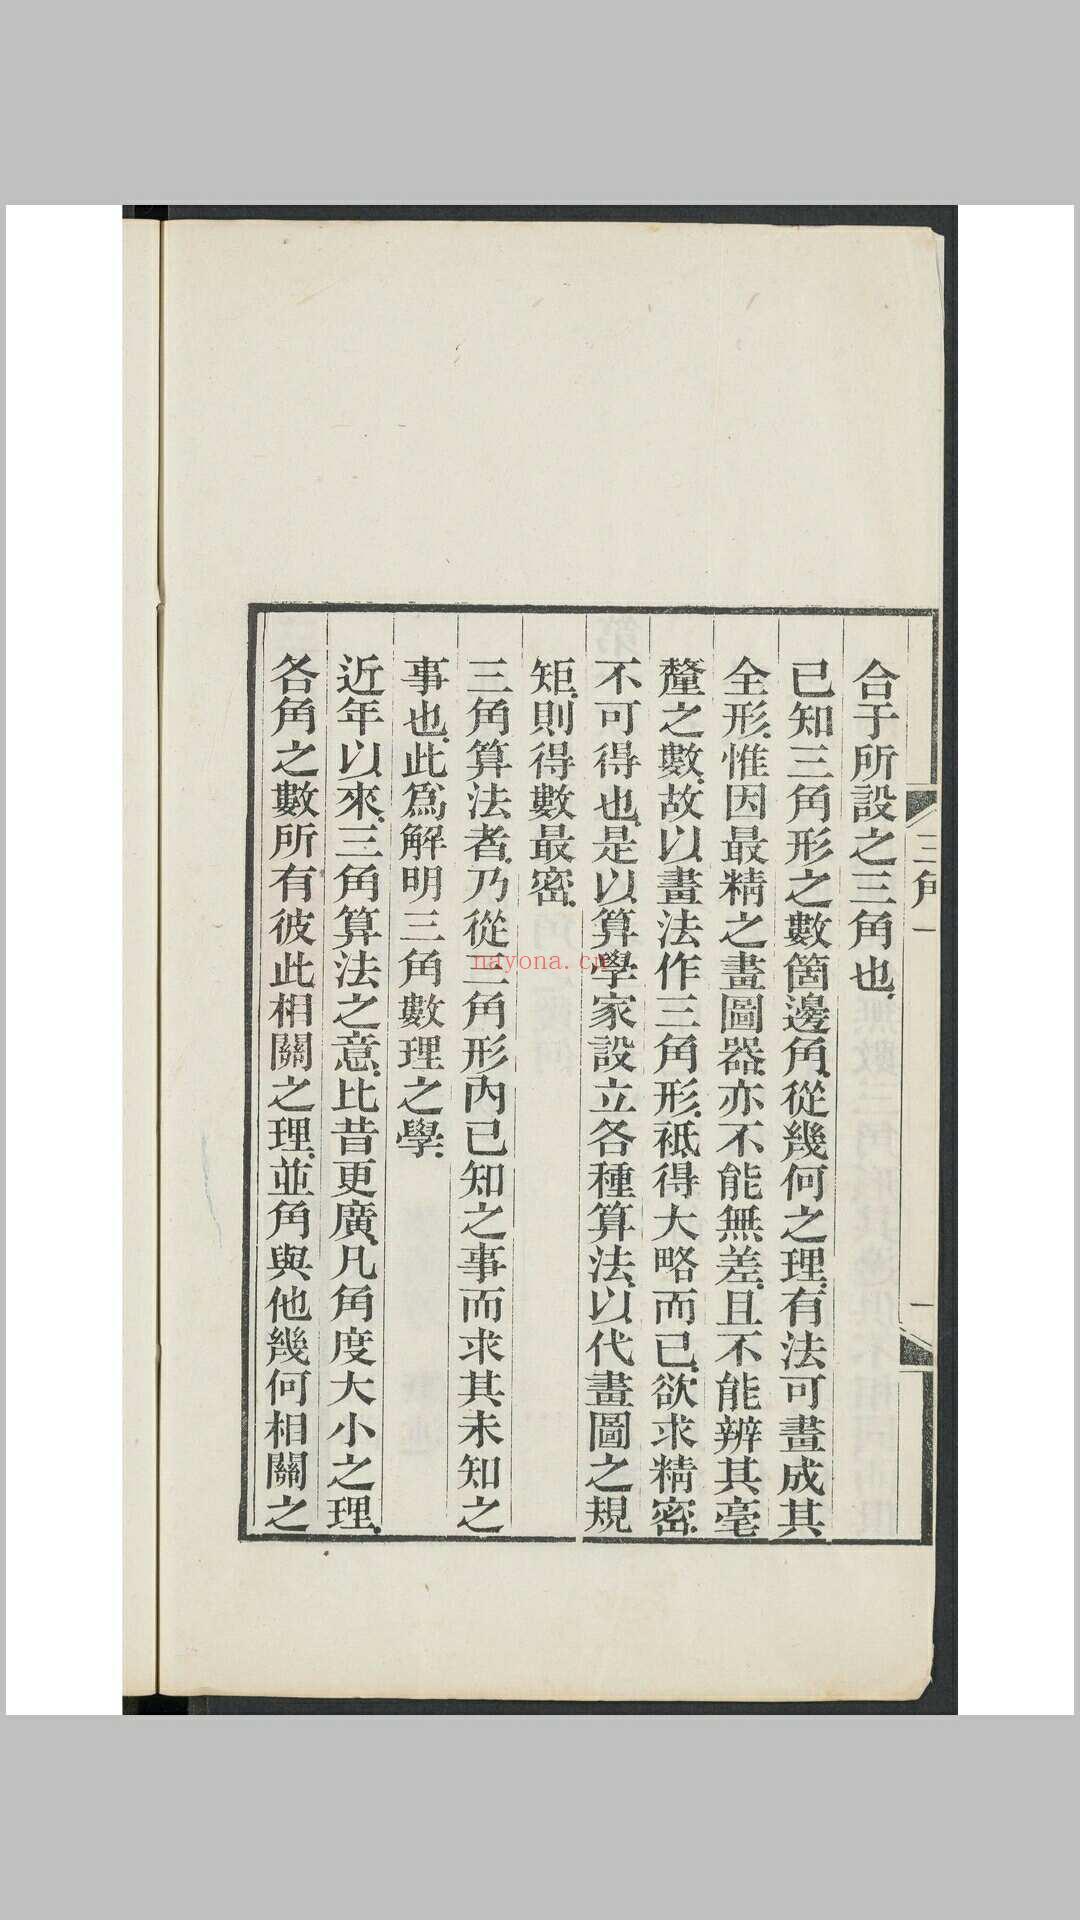 三角一
一
合于所設之三角也.
已知三角形之數箇邊角.從幾何之理.有法可畫成其
全形.惟因最精之畫圖器.亦不能無差.且不能辨其毫
釐之數.故以畫法作三角形.祗得大略而已.欲求精密.
不可得也.是以算學家設立各種算法.以代畫圖之規
矩.則得數最密.
三角算法者.乃從三角形內已知之事而求其未知之
事也.此爲解明三角數理之學.
近年以來.三角算法之意.比昔更廣.凡角度大小之理.
各角之數所有彼此相關之理.並角與他幾何相關之
nayona.cn